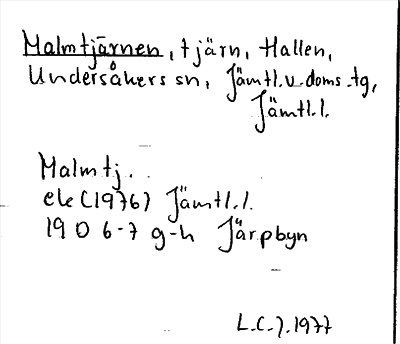 Malmtjärnen, tjärn, Hallen,
Undersåkers sn, Jämtl.v.doms.tg,
Jämtl.l.
Malmtj..
ek (1976) Jämtl.l.
19 D 6-7 g-h Järpbyn
L.C.J. 1977